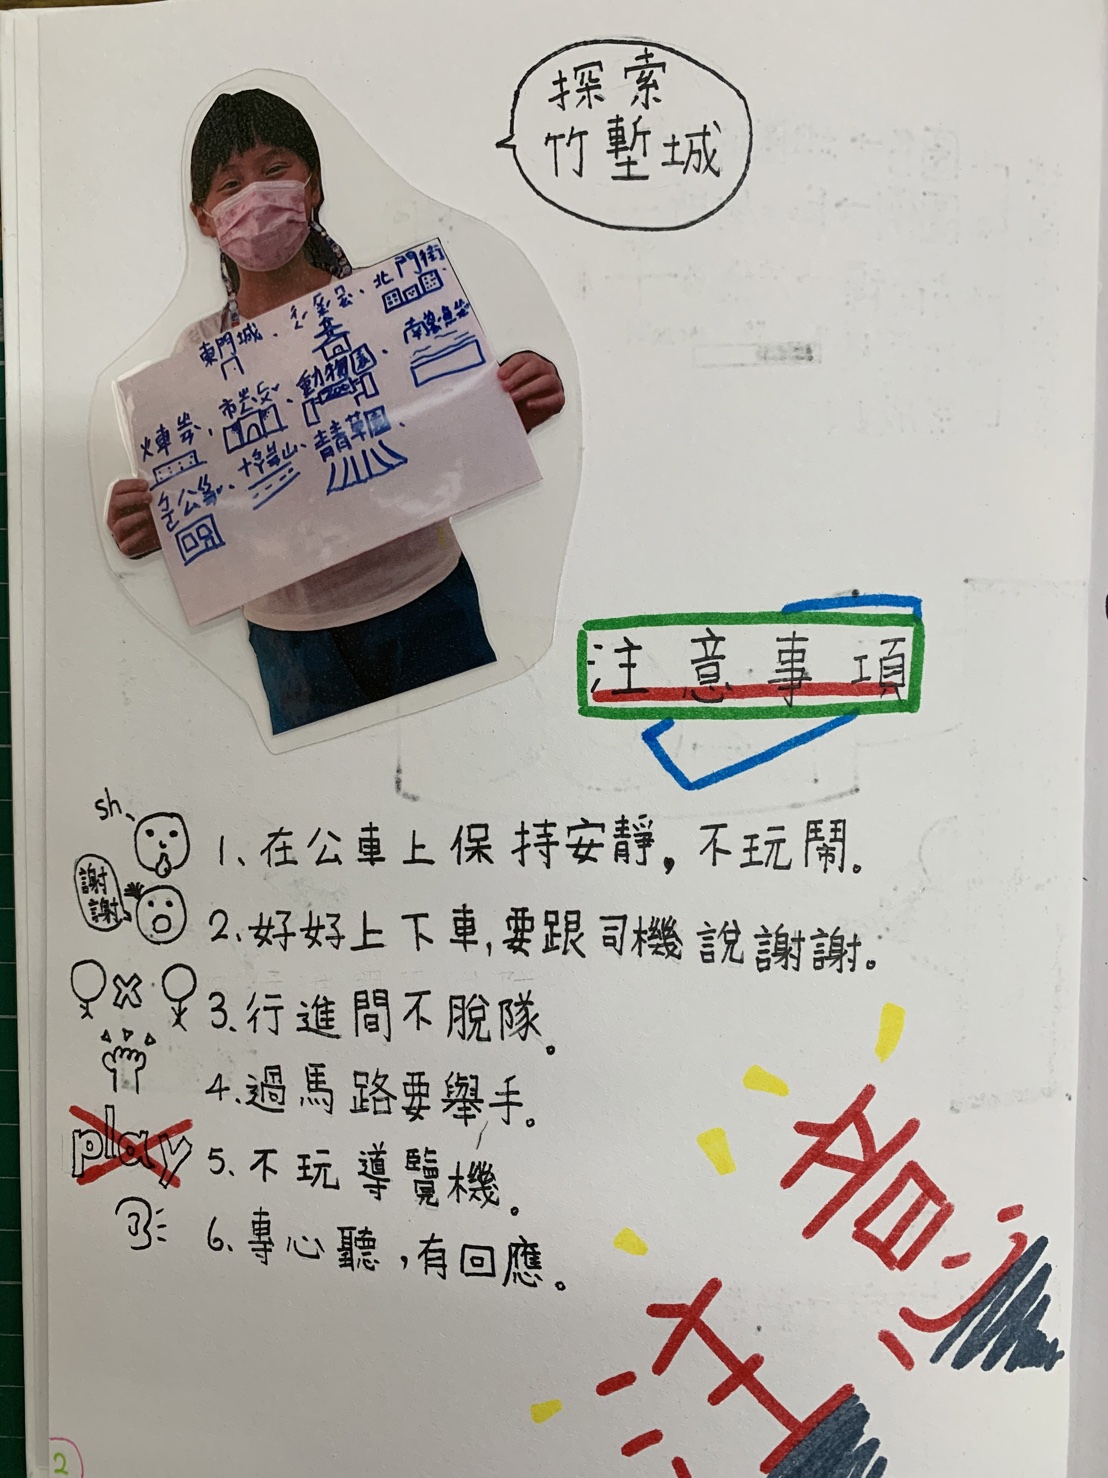 探索
竹塹城
北門街
東門城、
南寮漁港
火車站、市政府、動物園、
十八尖山、青草園、
注意事項
sh
1、在公車上保持安靜，不玩鬧。
謝謝
2、好好上下車，要跟司機說謝謝。
x
3、行進間不脫隊。
4、過馬路要舉手。
play
5、不玩導覽機。
6、專心聽，有回應。
注意
2